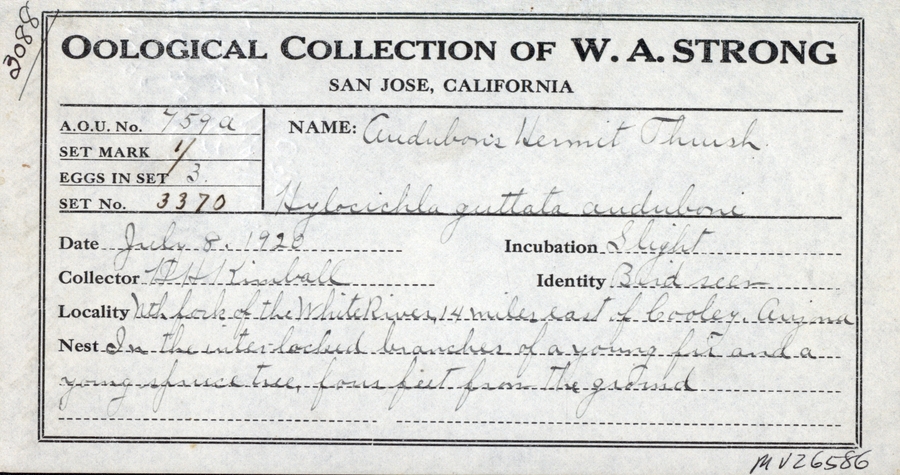 23088
OOLOGICAL COLLECTION OF W. A. STRONG
SAN JOSE, CALIFORNIA
A.O.U. No. 759a
NAME: Audubon's Hermit Thrush
SET MARK 1/
EGGS IN SET 3.
SET No. 3370
Hylocichla guttata auduboni
Date July 8. 1920
Incubation Slight
Collector H H Kimball
Identity Bird seen
Locality Nth fork of the White River, 14 miles east of Cooley, Arizona
Nest In the interlocked branches of a young fir and a
young spruce tree, four feet from the ground
MV26586